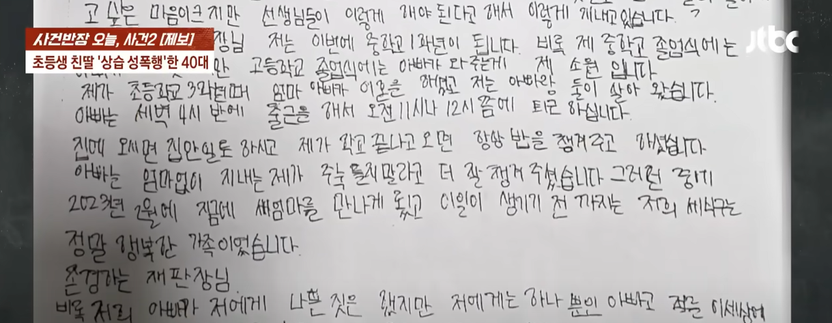 고 싶은 마음이 크지만 선생님들이 이렇게 해야 된다고 해서 이렇게 지내고 있습니다.
사건반장 오늘, 사건2 [제보]
jtbc
초등생 친딸 '상습 성폭행'한 40대
장님 저는 이번에 중학교 1학년이 됩니다. 비록 제 중학교 졸업식에는
만 고등학교 졸업식에는 아빠가 와주는게 제 소원 입니다
제가 초등학교 3학년때 엄마 아빠가 이혼을 하였고 저는 아빠랑 둘이 살아 왔습니다.
아빠는 새벽 4시 반에 출근을 해서 오전 11시나 12시 쯤에 퇴근 하십니다.
집에 오시면 집안일도 하시고 제가 학교 끝나고 오면 항상 밥을 챙겨주고 하셨습니다
아빠는 엄마없이 지내는 제가 주눅 들지말라고 더 잘 챙겨 주셨습니다 그러던 중
2023년 2월에 지금에 새엄마를 만나게 됬고 이일이 생기기 전 까지는 저희 세식구는
정말 행복한 가족이었습니다.
존경하는 재판장님
비록 저희 아빠가 저에게 나쁜 짓은 했지만 저에게는 하나 뿐인 아빠고 이세상에